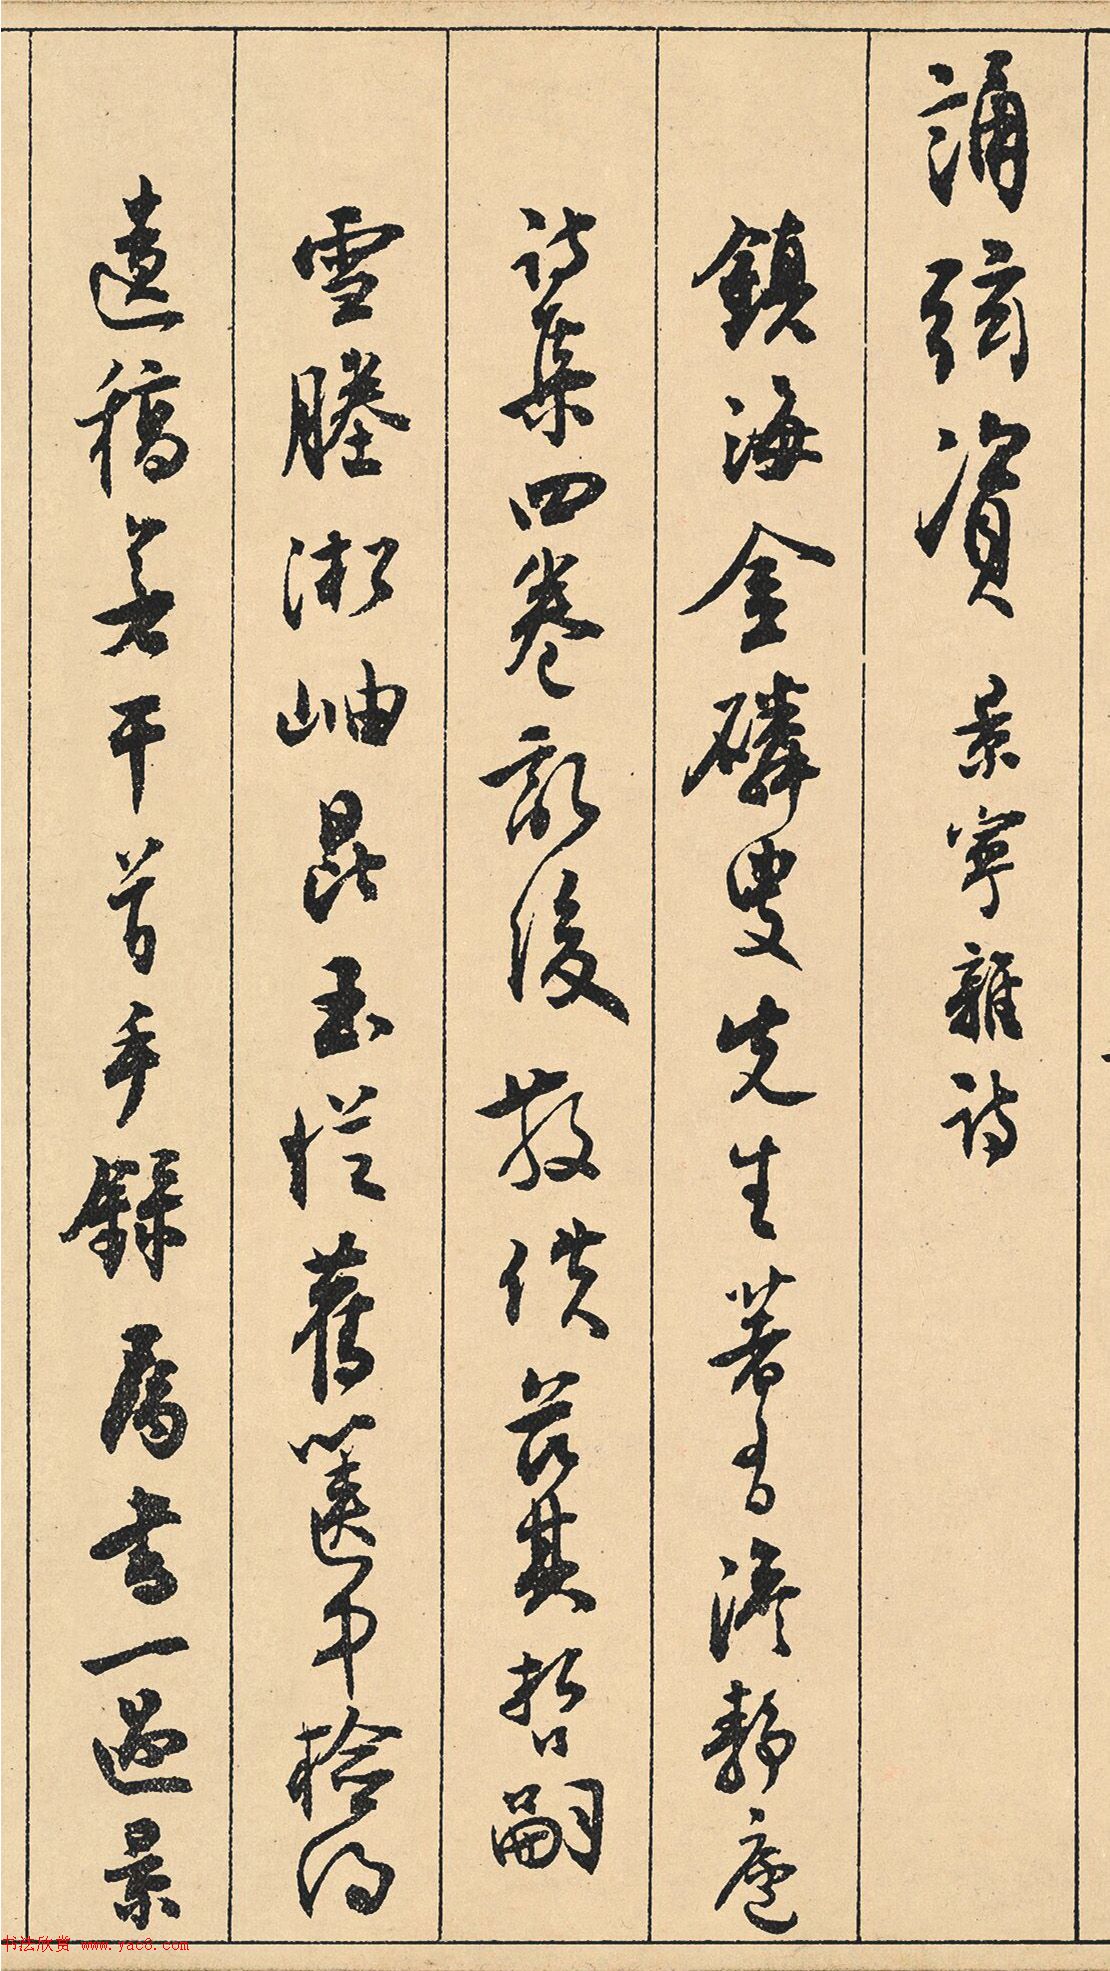 誦弦資 景寧雜詩
鎮海金磷叟先生著有澹靜廬
詩集四卷後散佚茲其哲嗣
雪塍淞岫昆玉從舊篋中檢得
遺稿若干首手錄屬書一過景
书法欣赏 www.yac8.com